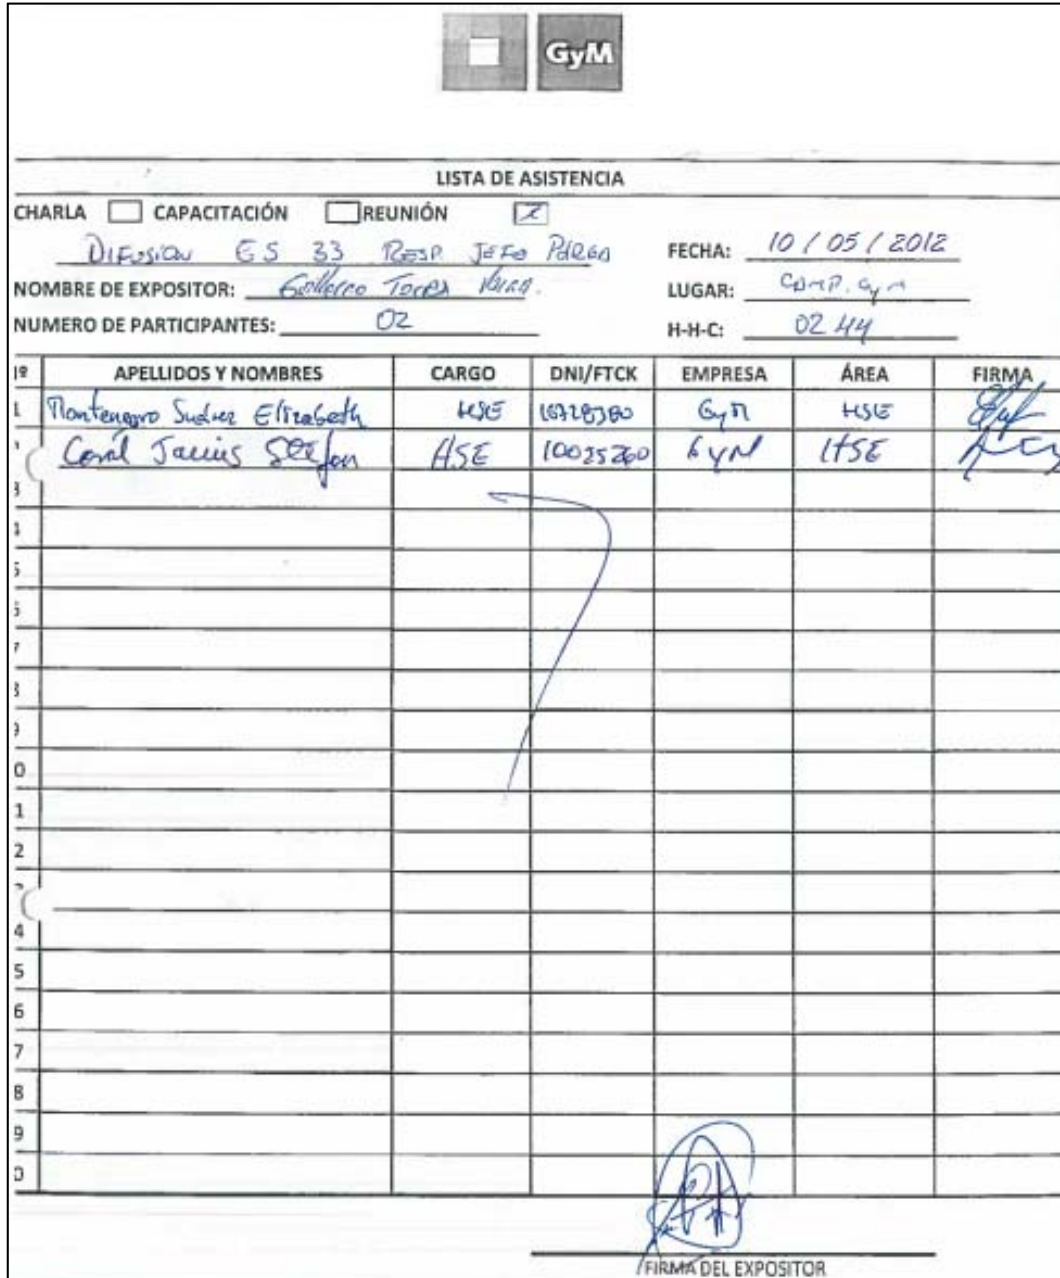 GyM
LISTA DE ASISTENCIA
CHARLA CAPACITACIÓN REUNIÓN X
DIFUSION ES 33 RESP. JEFE
FECHA: 10 / 05 / 2012
NOMBRE DE EXPOSITOR: Guillermo Torres
LUGAR: COMP. GyM
NUMERO DE PARTICIPANTES: 02
H-H-C: 02 HH
Nº APELLIDOS Y NOMBRES CARGO DNI/FTCK EMPRESA ÁREA FIRMA
1 Montenegro Suárez Elizabeth HSE GyM HSE
Coral HSE 10025260 GyM HSE
3
4
5
6
7
8
9
0
1
2
4
5
6
7
8
9
0
FIRMA DEL EXPOSITOR